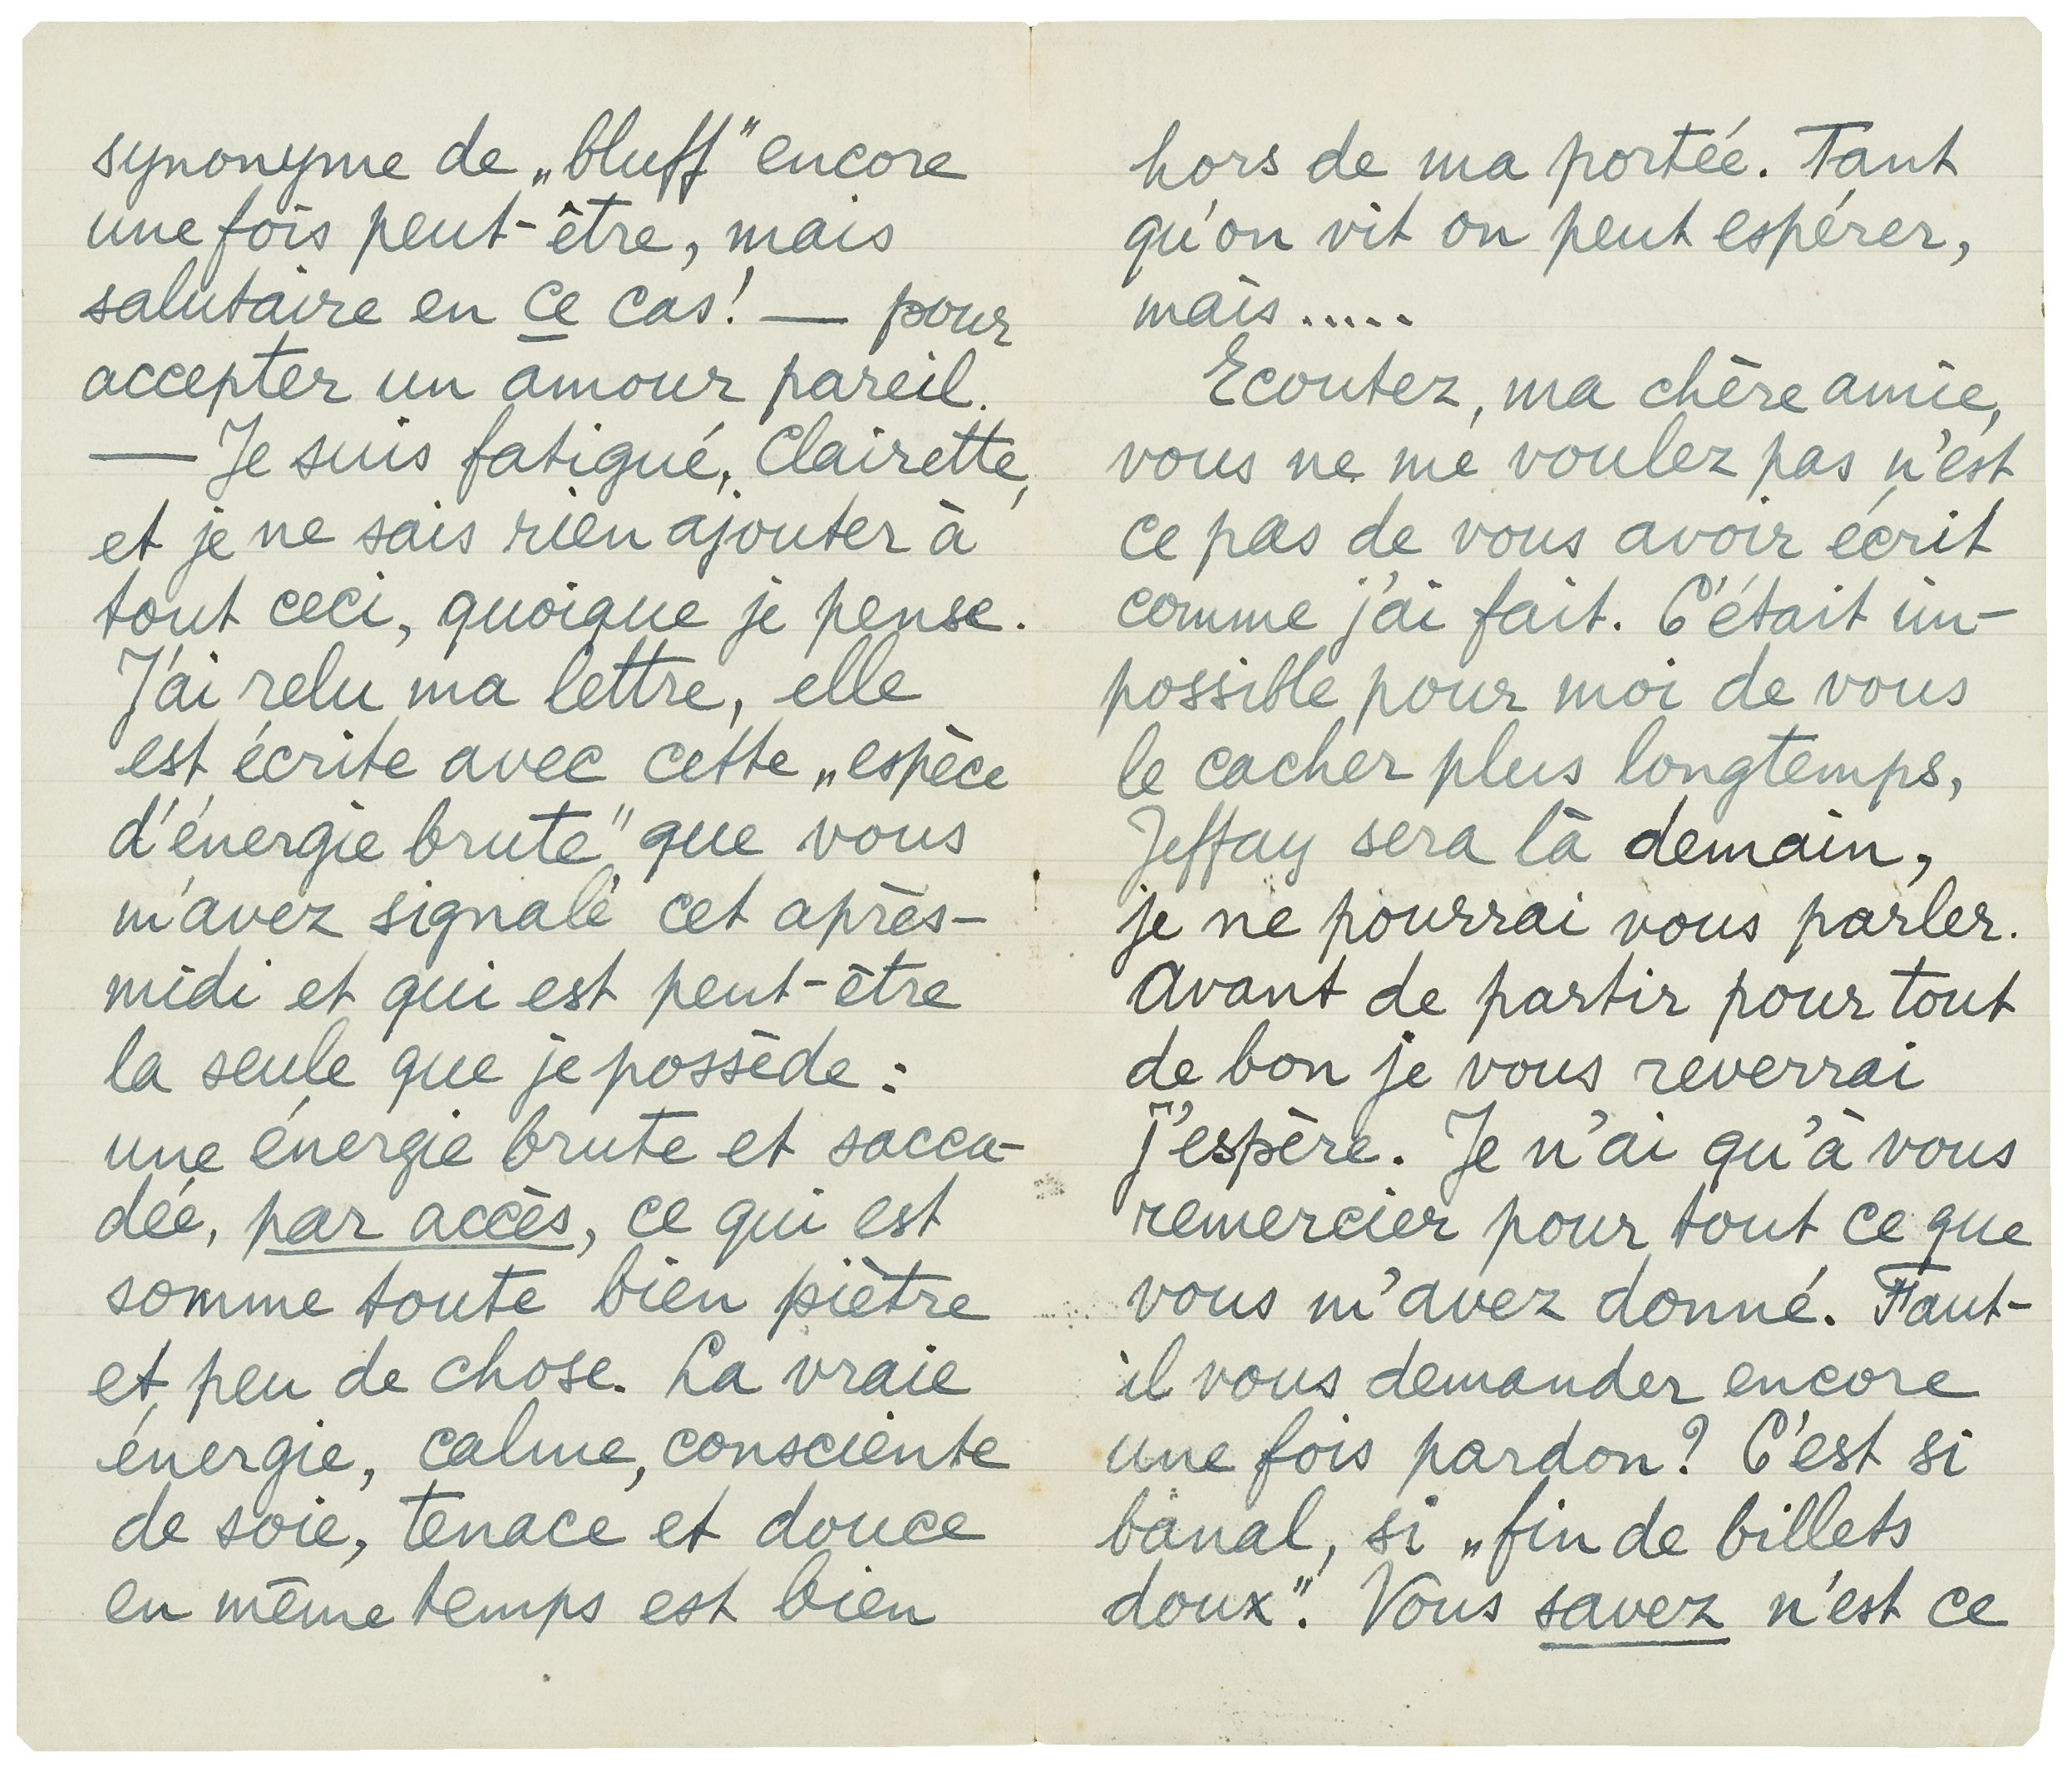 synonyme de „bluff" encore
une fois peut-être, mais
salutaire en ce cas! — pour
accepter un amour pareil.
— Je suis fatigué, Clairette,
et je ne sais rien ajouter à
tout ceci, quoique je pense.
J'ai relu ma lettre, elle
est écrite avec cette „espèce
d'énergie brute" que vous
m'avez signalé cet après-
midi et qui est peut-être
la seule que je possède :
une énergie brute et sacca-
dée, par accès, ce qui est
somme toute bien piètre
et peu de chose. La vraie
énergie, calme, consciente
de soie, tenace et douce
en même temps est bien
hors de ma portée. Tant
qu'on vit on peut espérer,
mais.....
Ecoutez, ma chère amie,
vous ne me voulez pas n'est
ce pas de vous avoir écrit
comme j'ai fait. C'était im-
possible pour moi de vous
le cacher plus longtemps,
Jeffay sera là demain,
je ne pourrai vous parler.
Avant de partir pour tout
de bon je vous reverrai
j'espère. Je n'ai qu'à vous
remercier pour tout ce que
vous m'avez donné. Faut-
il vous demander encore
une fois pardon? C'est si
banal, si „fin de billets
doux". Vous savez n'est ce